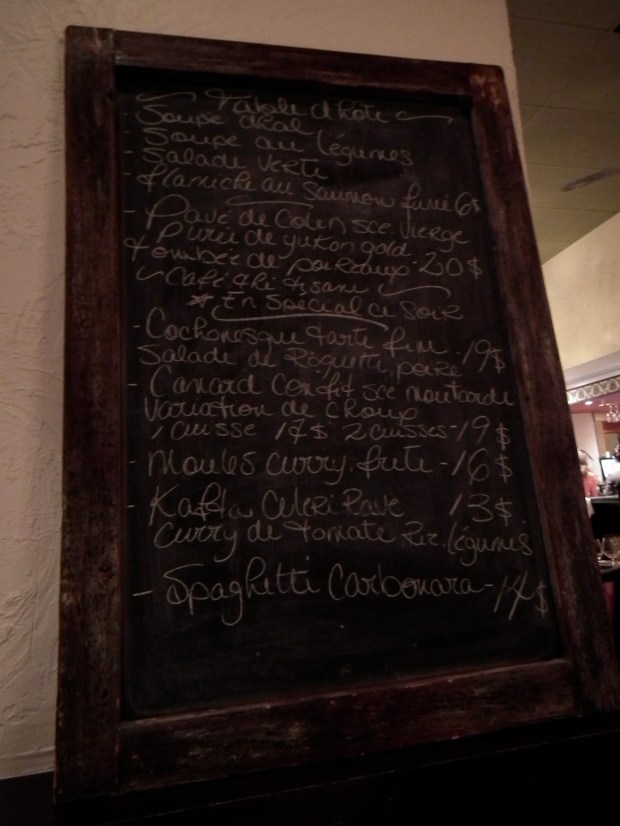 Table d'hôte
Soupe dhal
- Soupe au légumes
- Salade verte
- flamiche au saumon fumé 6$
- Pavé de Colin sce vierge
Purée de yukon gold
tombée de poireaux - 20$
Café thé tisane
* En Spécial ce soir
- Cochonesque tarte fine - 19$
Salade de Roquette, poire
- Canard confit sce moutarde
Variation de choux
1 cuisse 17$ 2 cuisses - 19$
- Moules curry. frite - 16$
- Kafta Céleri Rave 13$
Curry de tomate. Riz. légumes
- Spaghetti Carbonara - 14$